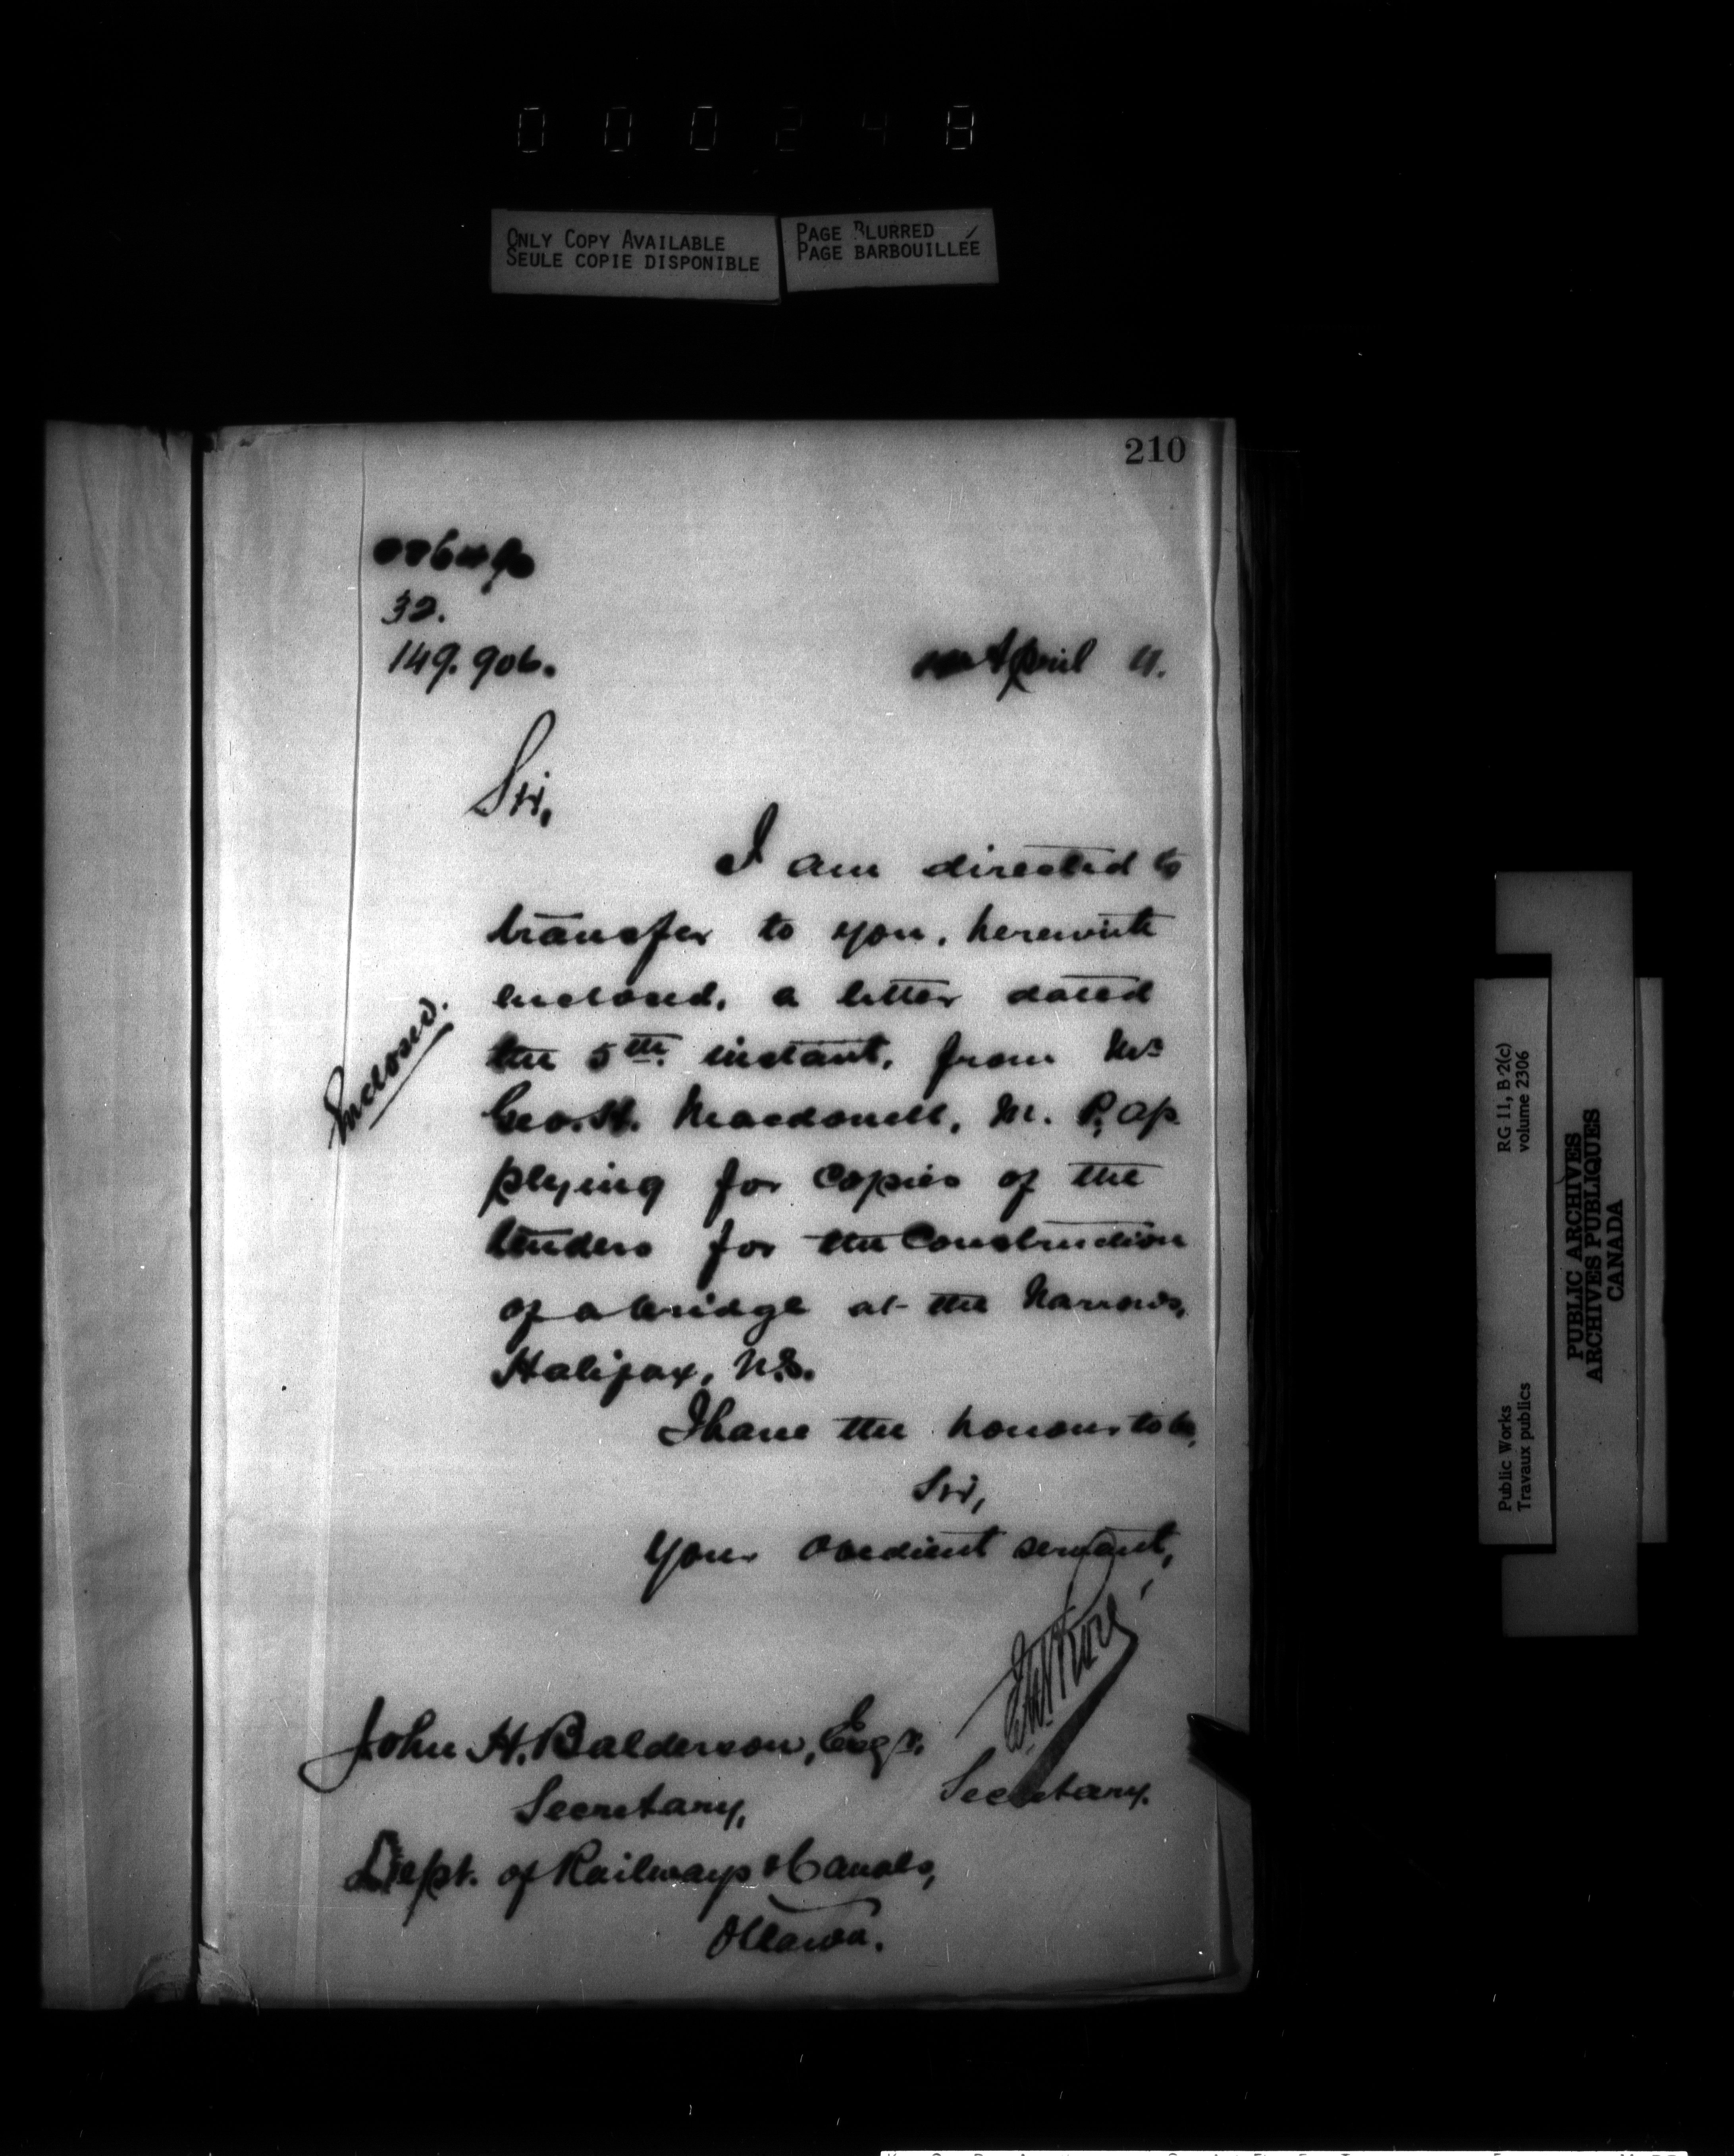 000248
ONLY COPY AVAILABLE
SEULE COPIE DISPONIBLE
PAGE BLURRED
PAGE BARBOUILLÉE
210
32.
149.906.
April 11.
Sir,
I am directed to
transfer to you, herewith
enclosed, a letter dated
the 5th instant, from Mr
Geo. H. Macdonell, M. P, ap
plying for copies of the
tenders for the construction
of a bridge at the Narrows,
Halifax, N.S.
Enclosed.
I have the honour to be,
Sir,
Your obedient servant,
Secretary.
John H. Balderson, Esqr.
Secretary,
Dept. of Railways & Canals,
Ottawa.
RG 11, B 2(c)
volume 2306
Public Works
Travaux publics
PUBLIC ARCHIVES
ARCHIVES PUBLIQUES
CANADA